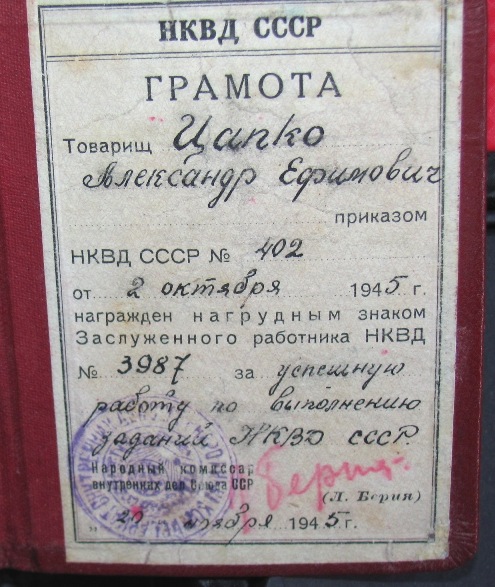 НКВД СССР
ГРАМОТА
Товарищ Цапко
Александр Ефимович
приказом
НКВД СССР № 402
от 2 октября 1945 г.
награжден нагрудным знаком
Заслуженного работника НКВД
№ 3987 за успешную
работу по выполнению
заданий НКВД СССР.
Народный комиссар
внутренних дел Союза ССР
Берия
(Л. Берия)
ноября 1945 г.